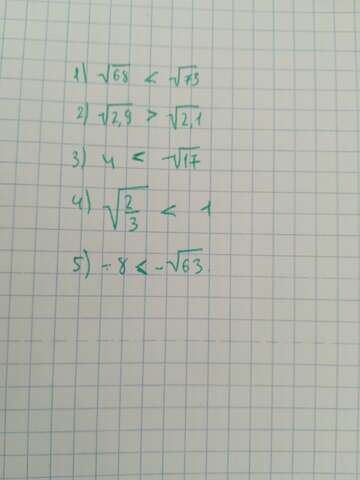 1) √68 < √73
2) √2,9 > √2,1
3) 4 < √17
4) √(2/3) < 1
5) -8 < -√63